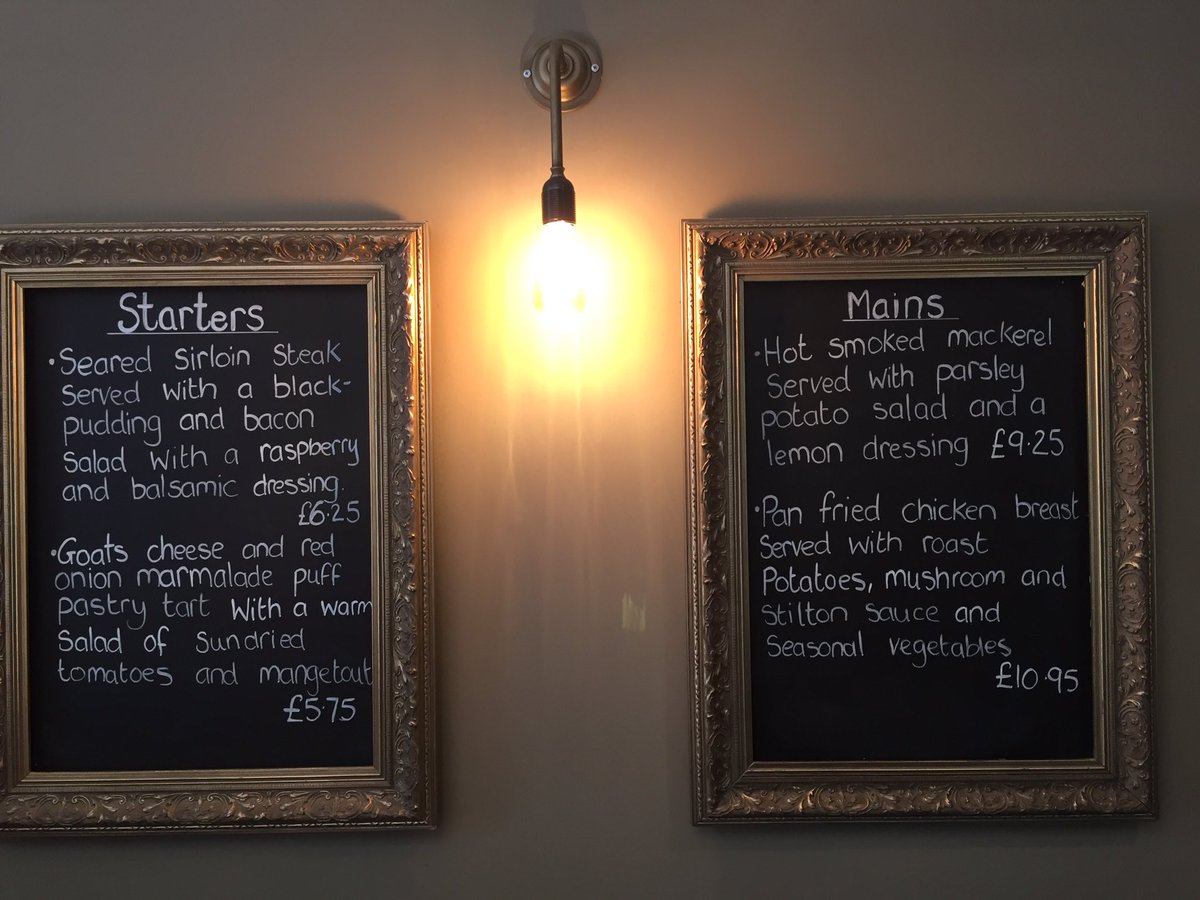 Starters
• Seared Sirloin Steak
Served with a black-
pudding and bacon
Salad with a raspberry
and balsamic dressing.
£6.25
• Goats cheese and red
onion marmalade puff
pastry tart with a warm
Salad of Sundried
tomatoes and mangetout
£5.75
Mains
• Hot smoked mackerel
Served with parsley
potato salad and a
lemon dressing £9.25
• Pan fried chicken breast
Served with roast
Potatoes, mushroom and
Stilton sauce and
Seasonal vegetables
£10.95